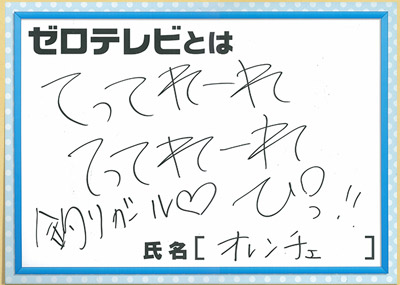 ゼロテレビとは
てってれーれ
てってれーれ
釣りガール♡ ぴっ!!
氏名[オレンチェ]